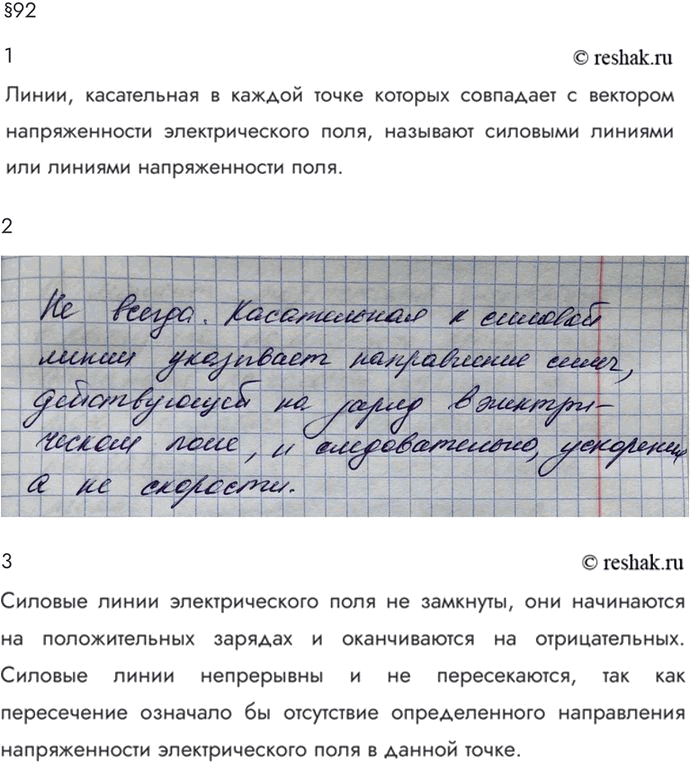 §92
1
© reshak.ru
Линии, касательная в каждой точке которых совпадает с вектором
напряженности электрического поля, называют силовыми линиями
или линиями напряженности поля.
2
Не всегда. Касательная к силовой
линии указывает направление силы,
действующей на заряд в электри-
ческом поле, и следовательно, ускорения
а не скорости.
3
© reshak.ru
Силовые линии электрического поля не замкнуты, они начинаются
на положительных зарядах и оканчиваются на отрицательных.
Силовые линии непрерывны и не пересекаются, так как
пересечение означало бы отсутствие определенного направления
напряженности электрического поля в данной точке.